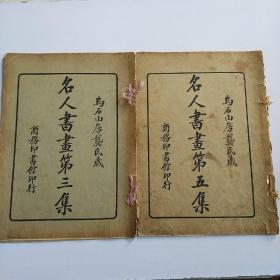 烏石山房龔氏藏
名人書畫第三集
商務印書館印行
烏石山房龔氏藏
名人書畫第五集
商務印書館印行